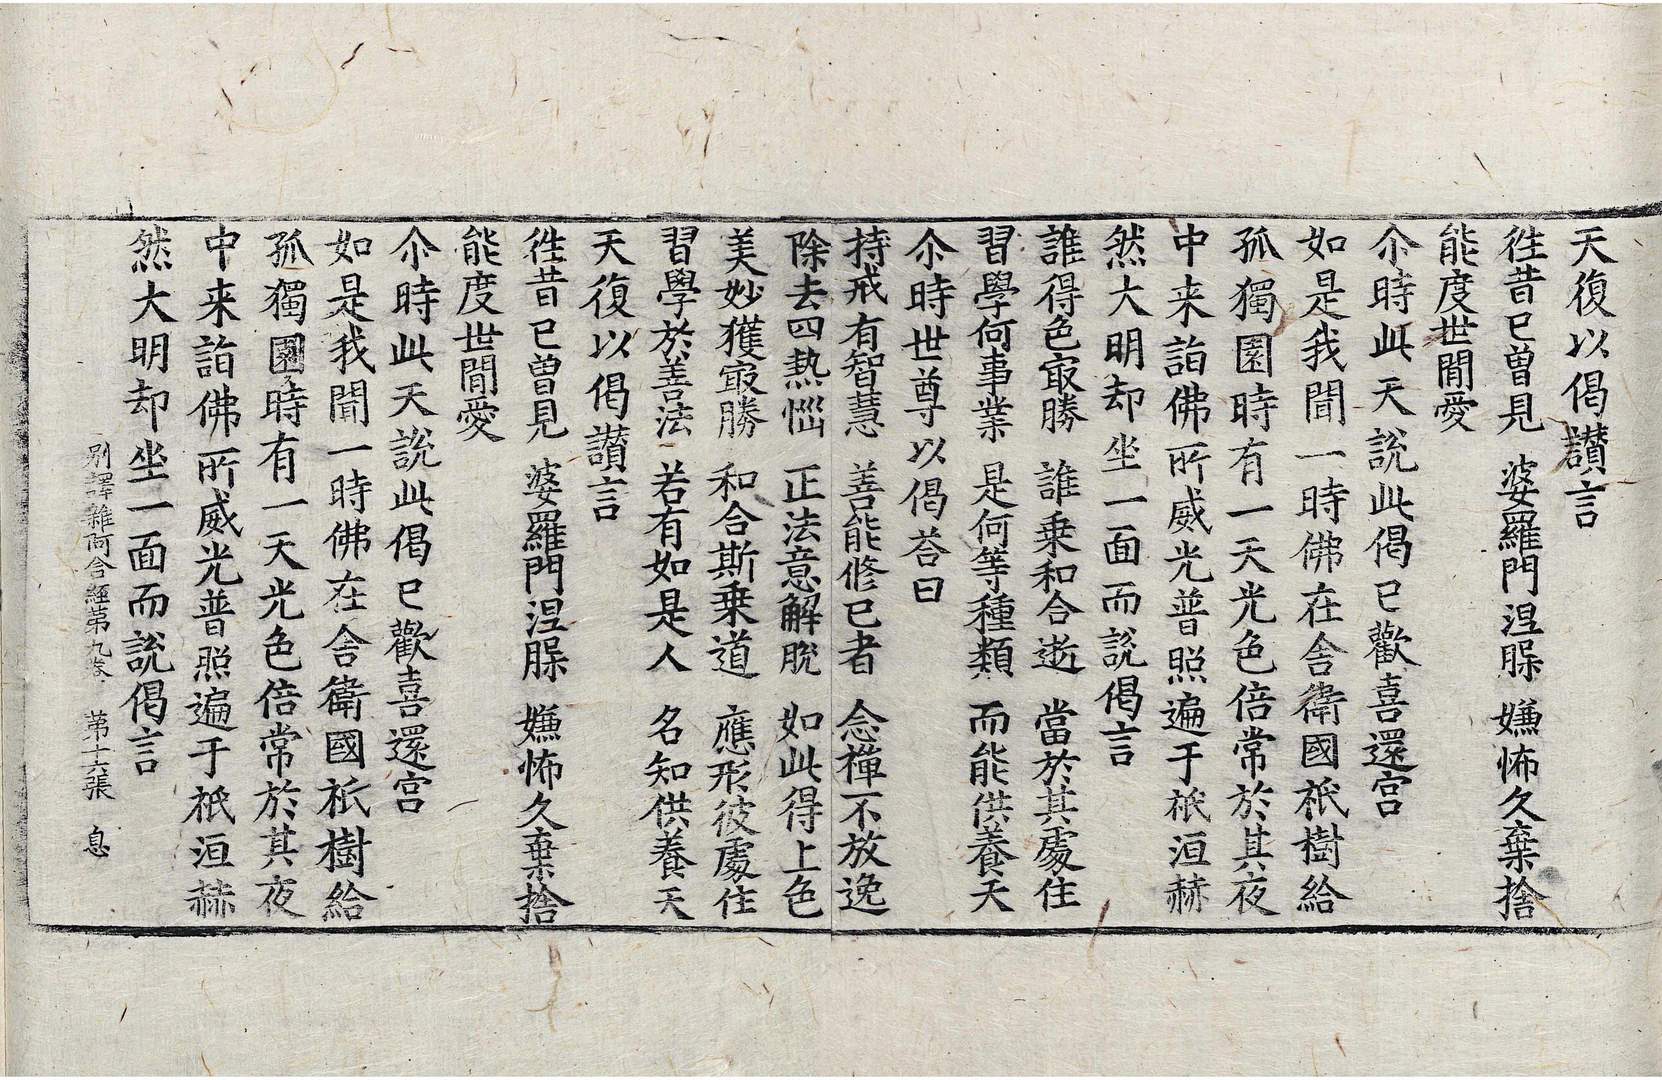 天復以偈讃言
徃昔已曽見 婆羅門涅槃 嫌怖久棄捨
能度世間愛
尒時此天說此偈已歡喜還宫
如是我聞一時佛在舎衛國祇樹給
孤獨園時有一天光色倍常於其夜
中来詣佛所威光普照遍于祇洹赫
然大明却坐一面而說偈言
誰得色㝡勝 誰乗和合逝 當於其處住
習學何事業 是何等種類 而能供養天
尒時世尊以偈荅曰
持戒有智慧 善能修已者 念禪不放逸
除去四熱惱 正法意解脫 如此得上色
美妙獲㝡勝 和合斯乗道 應形彼處住
習學於善法 若有如是人 名知供養天
天復以偈讃言
徃昔已曽見 婆羅門涅槃 嫌怖久棄捨
能度世間愛
尒時此天說此偈已歡喜還宫
如是我聞一時佛在舎衛國祇樹給
孤獨園時有一天光色倍常於其夜
中来詣佛所威光普照遍于祇洹赫
然大明却坐一面而說偈言
别譯雜阿含經第九卷 第十六張 息